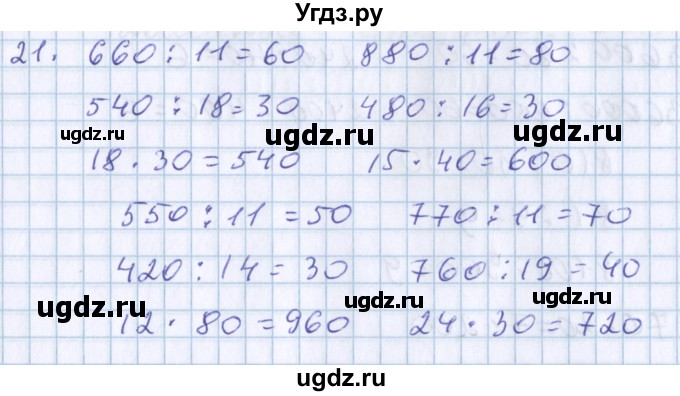 Угдз.ру
21. 660 : 11 = 60 880 : 11 = 80
540 : 18 = 30 480 : 16 = 30
ugdz.ru ugdz.ru
18 · 30 = 540 15 · 40 = 600
ugdz.ru
550 : 11 = 50 770 : 11 = 70
420 : 14 = 30 760 : 19 = 40
ugdz.ru ugdz.ru
12 · 80 = 960 24 · 30 = 720
ugdz.ru